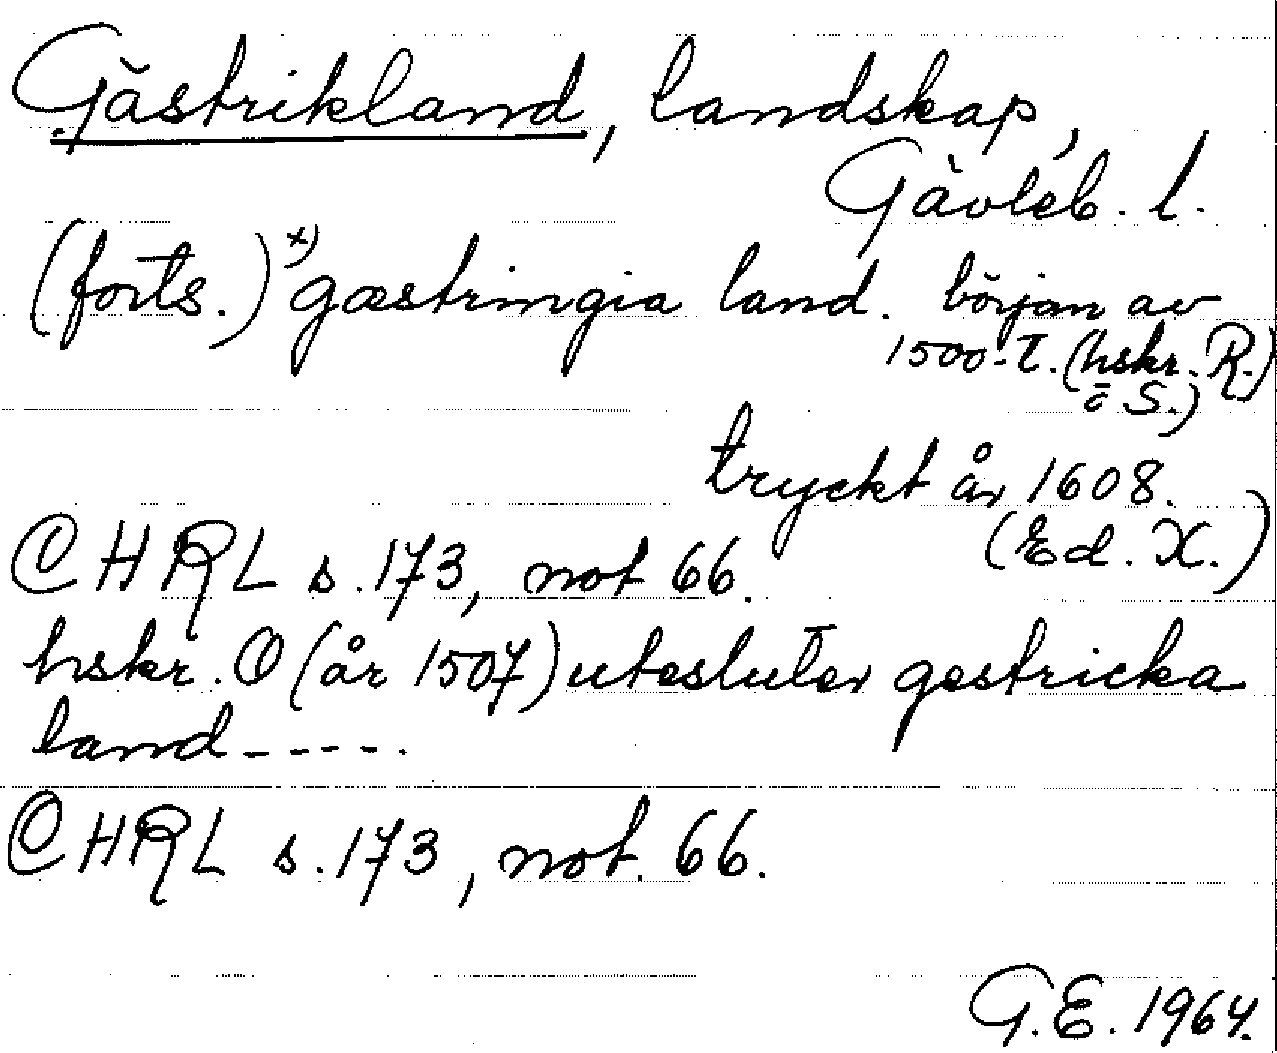 Gästrikland, landskap,
Gävleb. l.
(forts.) x) gæstringia land. början av
1500-t. (hskr. R.)
o S.)
tryckt år 1608.
(Ed. X.)
CHRL s. 173, not 66.
hskr. O (år 1507) utesluter gestricka
land-----.
CHRL s. 173, not. 66.
G.E. 1964.